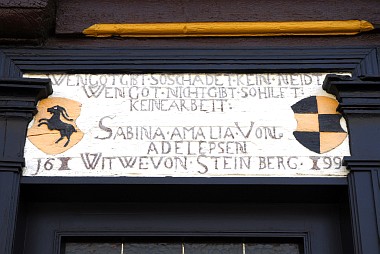 WEN·GOT·GIBT·SO·SCHADET·KEIN·NEIDT
WEN·GOT·NICHT·GIBT·SO·HILFT·
KEINE·ARBEIT:
SABINA·AMALIA·VON·
ADELEPSEN
16 WITWE·VON·STEIN BERG· 99